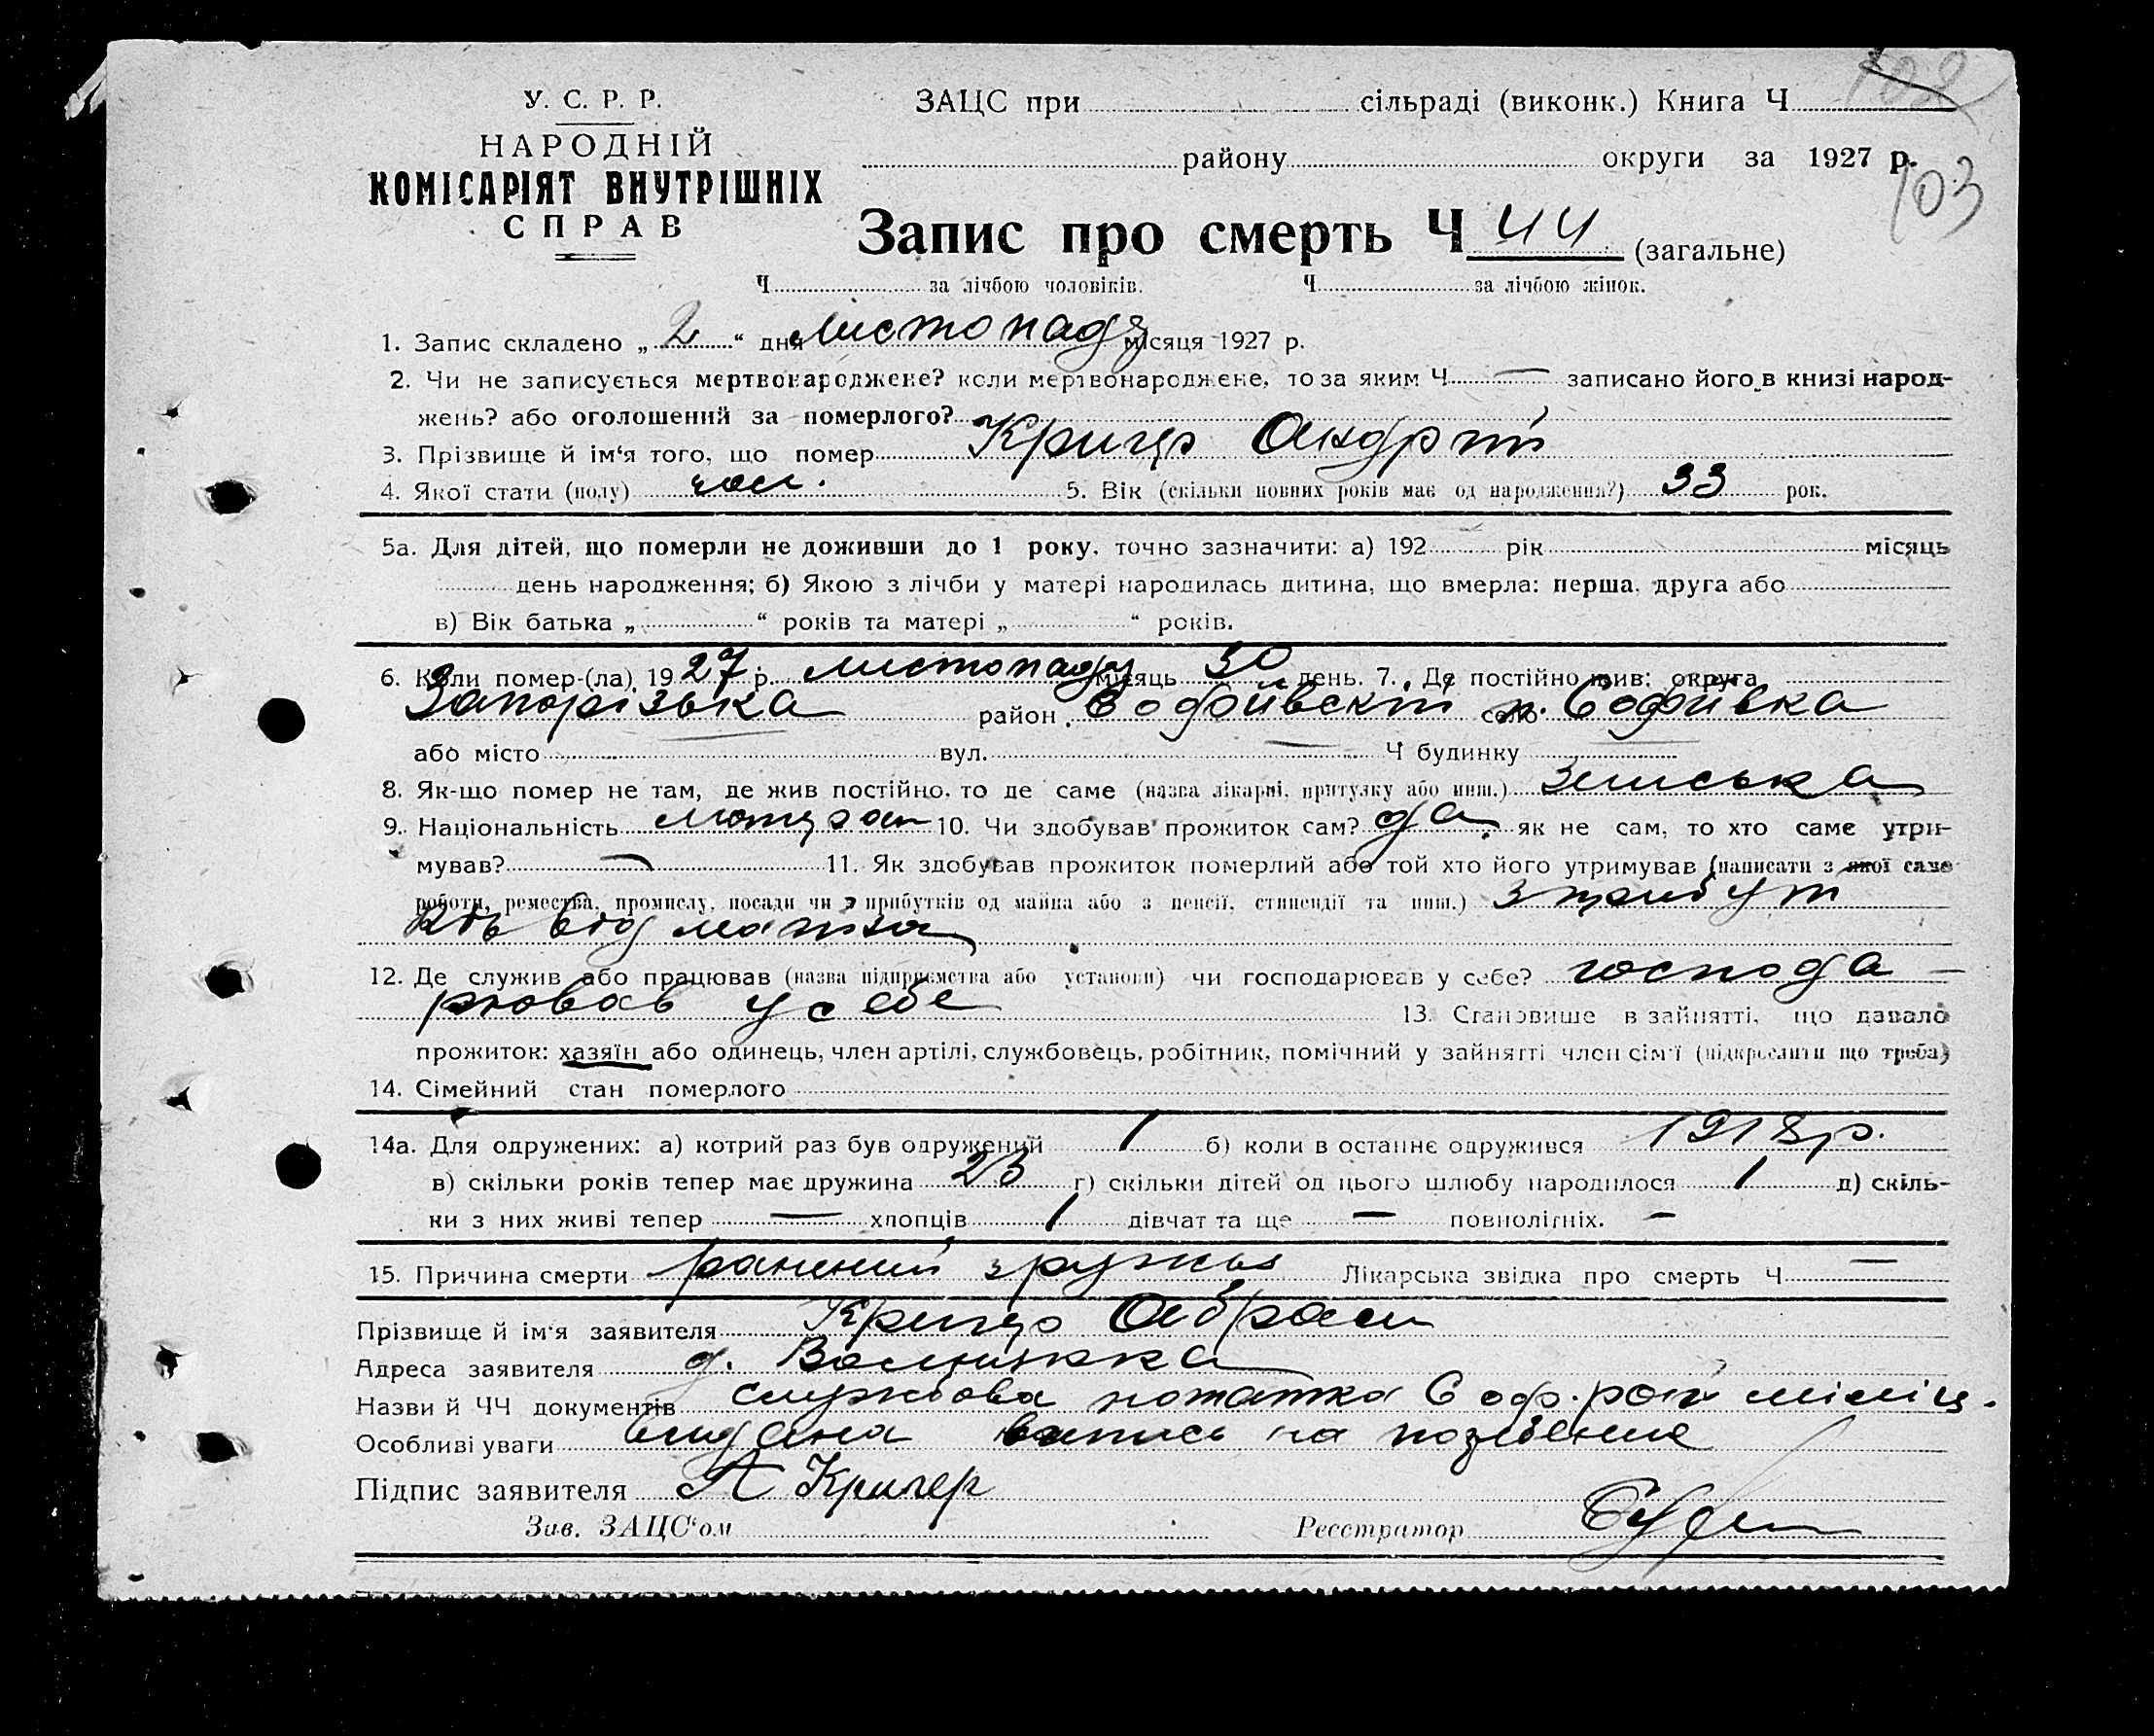 У. С. Р. Р.
НАРОДНІЙ
КОМІСАРІЯТ ВНУТРІШНІХ
СПРАВ
ЗАЦС при сільраді (виконк.) Книга Ч
району округи за 1927 р.
103
Запис про смерть Ч 44 (загальне)
Ч за лічбою чоловіків. Ч за лічбою жінок.
1. Запис складено „ 2 “ дня листопада місяця 1927 р.
2. Чи не записується мертвонароджене? коли мертвонароджене, то за яким Ч — записано його в книзі народ-
жень? або оголошений за померлого?
3. Прізвище й ім‘я того, що помер Кригер Андрій
4. Якої стати (полу) чол. 5. Вік (скільки повних років має од народження?) 33 рок.
5а. Для дітей, що померли не доживши до 1 року, точно зазначити: а) 192 рік місяць
день народження; б) Якою з лічби у матері народилась дитина, що вмерла: перша, друга або
в) Вік батька „ “ років та матері „ “ років.
6. Коли помер-(ла) 1927 р. листопаду місяць 30 день. 7. Де постійно жив: округа
Запорізька район Софіївскій село к. Софіївка
або місто — вул. — Ч будинку —
8. Як-що помер не там, де жив постійно, то де саме (назва лікарні, притулку або инш.) земська
9. Національність 10. Чи здобував прожиток сам? да. як не сам, то хто саме утри-
мував? — 11. Як здобував прожиток померлий або той хто його утримував (написати з якої саме
роботи, ремества, промислу, посади чи з прибутків од майна або з пенсії, стипендії та инш.) з прибут
ків від
12. Де служив або працював (назва підприємства або установи) чи господарював у себе? господа-
рював у себе 13. Становище в зайнятті, що давало
прожиток: хазяїн або одинець, член артілі, службовець, робітник, помічний у зайнятті член сім‘ї (підкреслити що треба)
14. Сімейний стан померлого
14а. Для одружених: а) котрий раз був одружений 1 б) коли в останнє одружився 1918 р.
в) скільки років тепер має дружина г) скільки дітей од цього шлюбу народилося 1 д) скіль-
ки з них живі тепер — хлопців 1 дівчат та ще — повнолітніх. —
15. Причина смерти ранений з ружья Лікарська звідка про смерть Ч —
Прізвище й ім‘я заявителя Кригер Абрам
Адреса заявителя
Назви й ЧЧ документів службова нотатка Соф. рай міліц.
Особливі уваги видана на
Підпис заявителя А Кригер
Зав. ЗАЦС‘ом Реєстратор